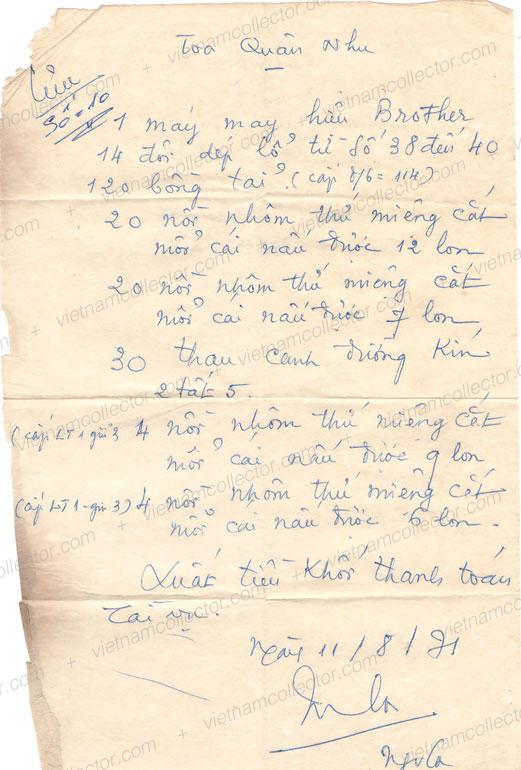 Toa Quân Nhu
Lưu
Số 10
1 máy may hiệu Brother
14 đôi dép lổ từ số 38 đến 40
120 bông tai. (cấp 8/6 = 114)
20 nồi nhôm thứ miêng cắt
mổi cái nấu được 12 lon
20 nồi nhôm thứ miêng cắt
mổi cái nấu được 7 lon
30 thau canh đường kín
2 tất 5.
(cấp LT1 gửi 3 4 nồi nhôm thứ miêng cắt
mổi cái nấu được 9 lon
(cấp LT1-gửi 3) 4 nồi nhôm thứ miêng cắt
mổi cái nấu được 6 lon.
Xuất tiền khỏi thanh toán
Tài vụ.
Ngày 11/8/71
vietnamcollector.com